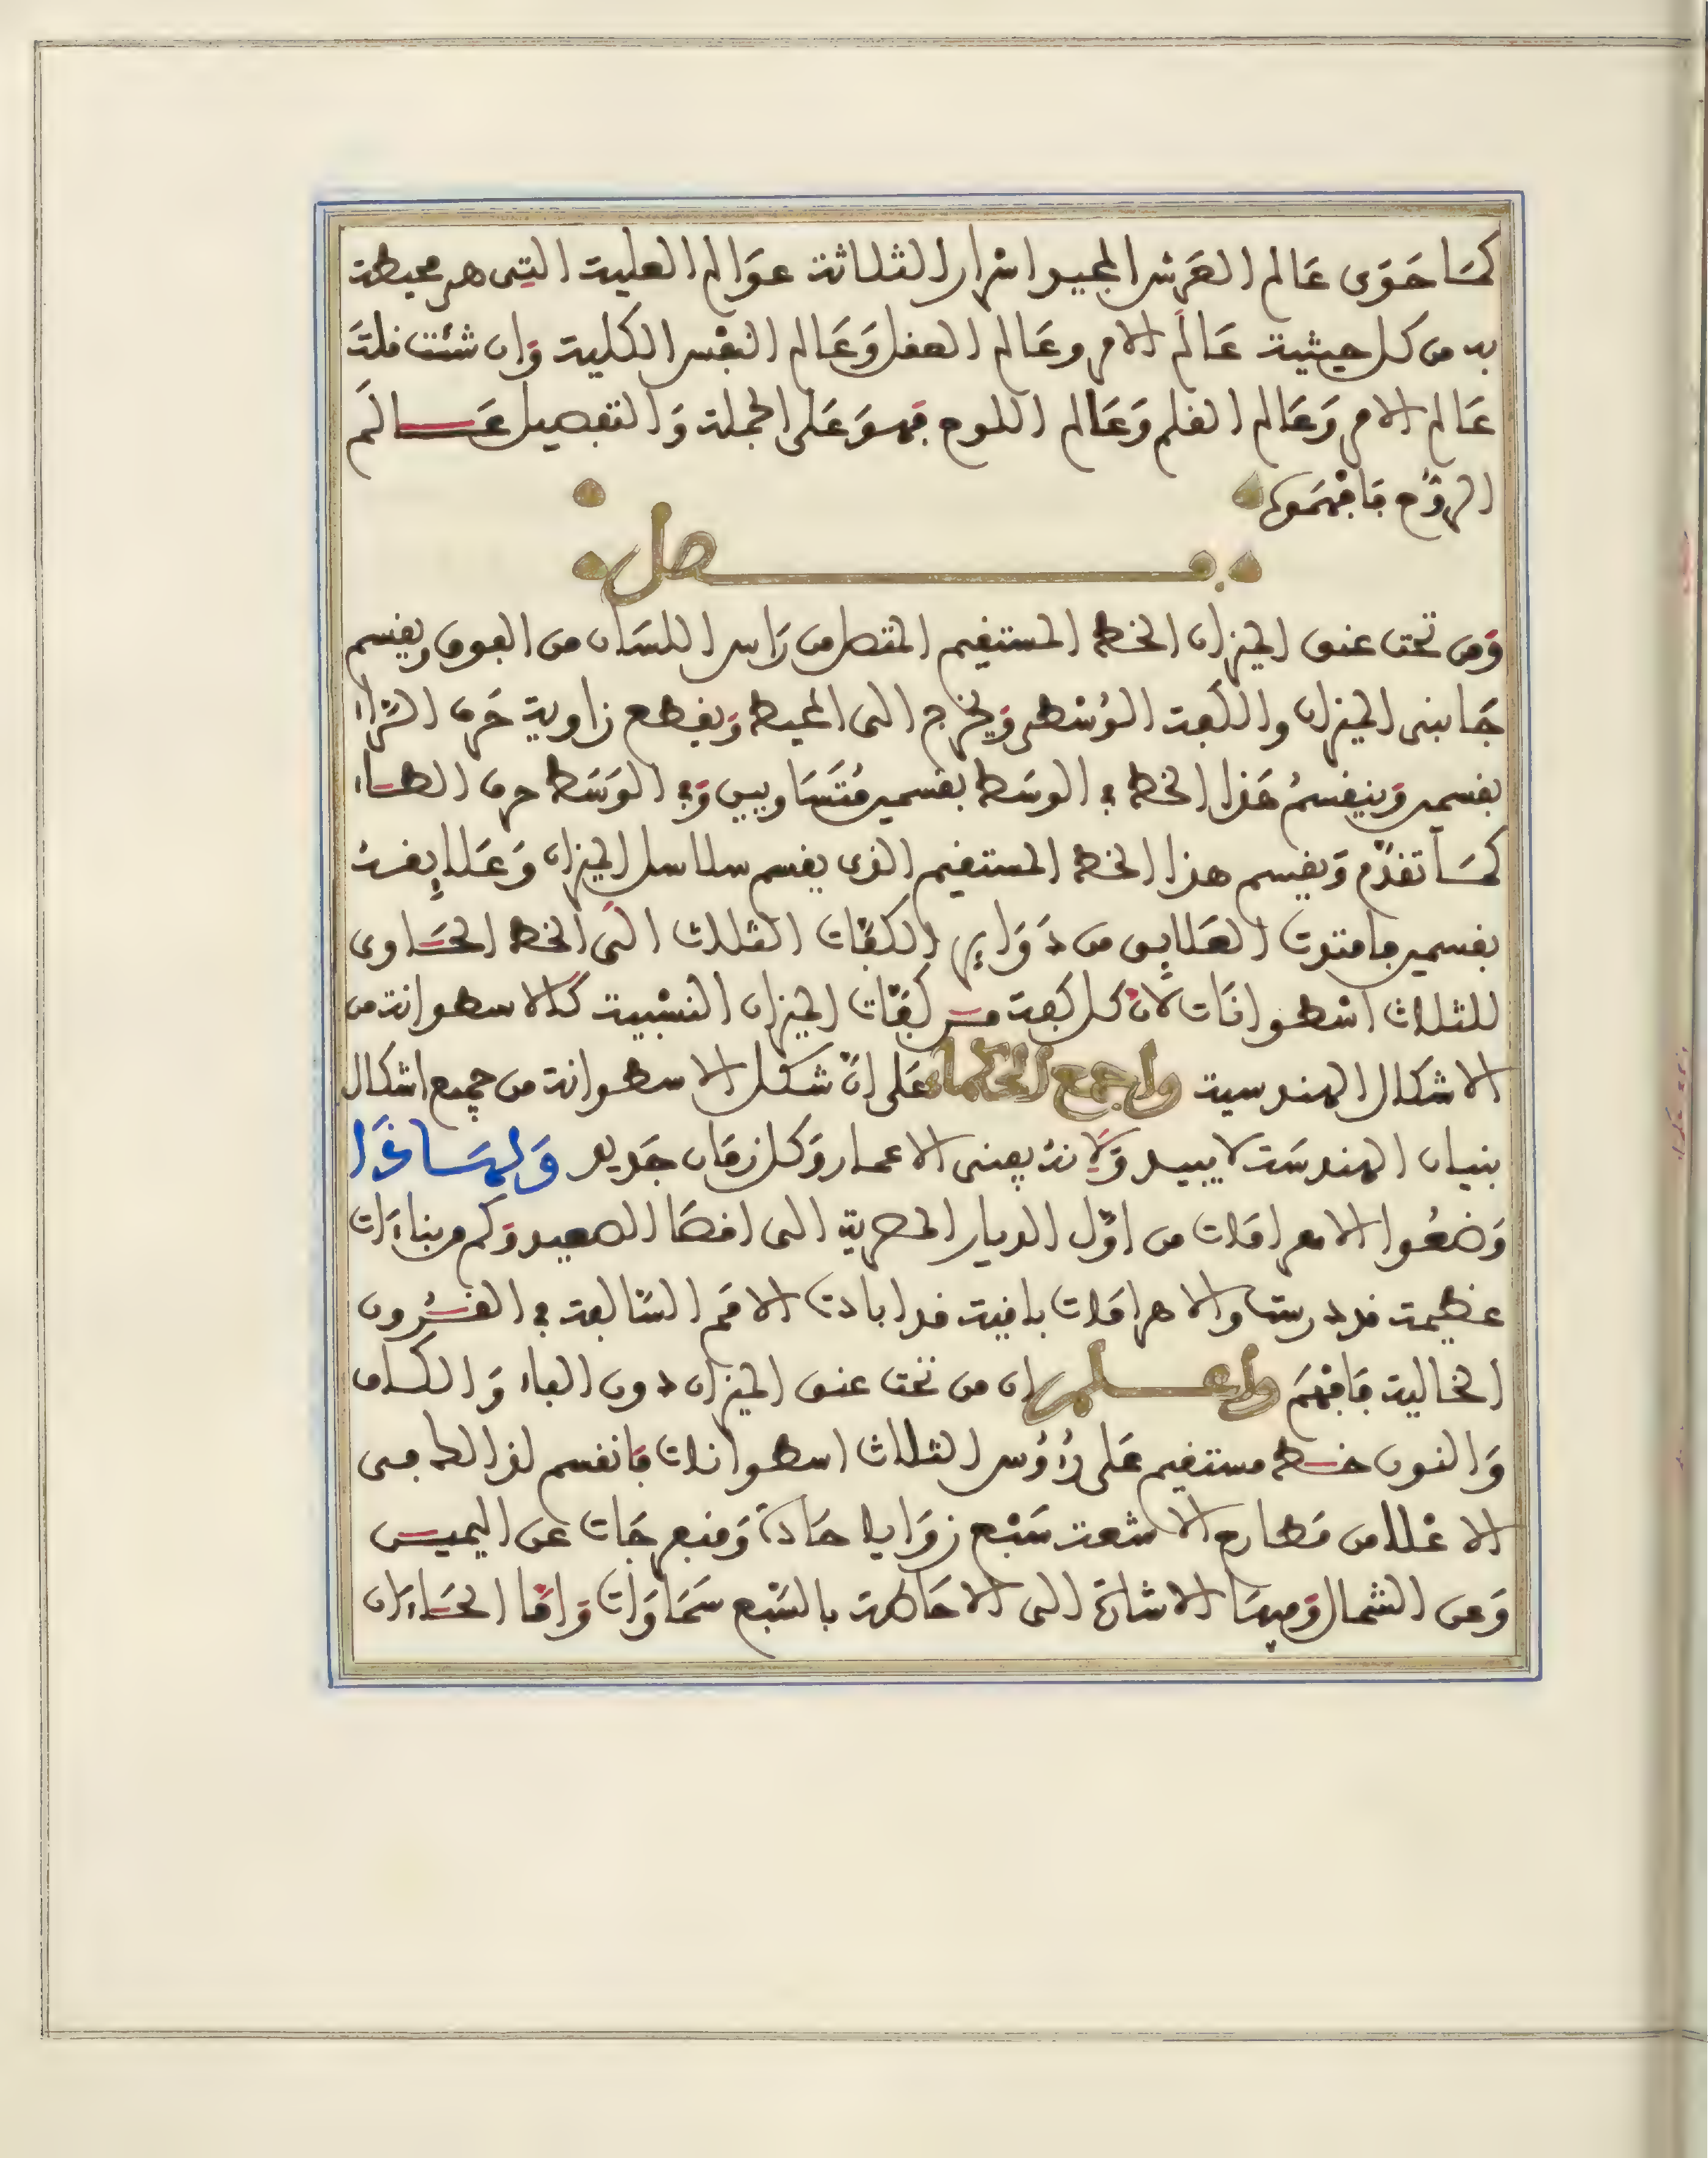 كمَا حَوَى عَالم العَرش المجيد اسْرار الثلاثة عوَالم العلية التِى هى محيطة
به من كل حيثية عَالَم الامر وعَالم العقل وَعَالم النفْس الكلية وَان شئت قلتَ
عَالم الامر وَعَالم القلم وَعَالم اللوح فهوَ عَلى الجملة وَالتفصيل عَالَم
الروْح فَافْهمَوه
فصل
وَمن تحت عنق الميزان الخط المستقيم المتصل من رَاس اللسَان من الفوق ويقسم
جَانبى الميزان والكفة الوُسْطى وَيخرج الى المحيط وَيقطع زاوية حَرف الرَّاء
بقسمين وَينقسمُ هَذا الخط في الوسَط بقسمين مُتَسَاويين وَفي الوَسَط حرف الطاء
كمَا تقدّم وَيقسم هذا الخط المستقيم الذى يقسم سلاسل الميزان وَعَلايقهُ
بقسمين ما متدت العَلايق من دَوَاير الكفّات الثلاث الَى الخط الحَاوى
للثلاث اسْطوانَات لانّ كل كفة من كفّات الميزان النسْبية كَالاسطوانة من
الاشكال الهندسية واجمع الحكماء عَلى انّ شكل الاسطوانة من جميع اشكال
بنيان الهندسَة لا يبيد وَلَانهُ يفنى الاعمار وَكل زمَان جَديد وَلهَاذَا
وَضعُوا الاهرامَات من اوّل الديار المصرية الى اقصَا الصعيد وَكم من بناءَات
عظيمة قد درست والاهرامَات باقية قد ابادت الامَم السَّالفة في القُرون
الخالية فَافْهَم واعلم ان من تحت عنق الميزان دون الفاء وَالكاف
وَالنون خط مستقيم عَلى رُؤُس الثلاث اسطوانات فَانقسم لذالك من
الاعْلا من مَطارح الاشعة سَبْع زوَايا حَادة وَمنفرجَات عن اليمين
وَعن الشمال وَفيهَا الاشارَة الى الاحَاطة بالسّبْع سَمَاوَات وَامَّا الحَاءَان